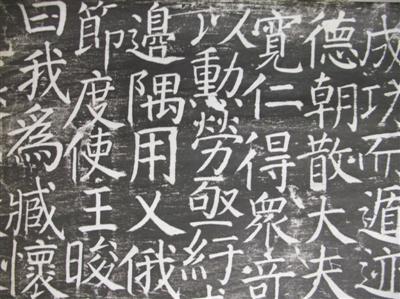 成功而遁迹
德朝散大夫
寬仁得眾竒
以勳勞亟紆
邊隅用乂俄
節度使王晙
曰我爲臧懷